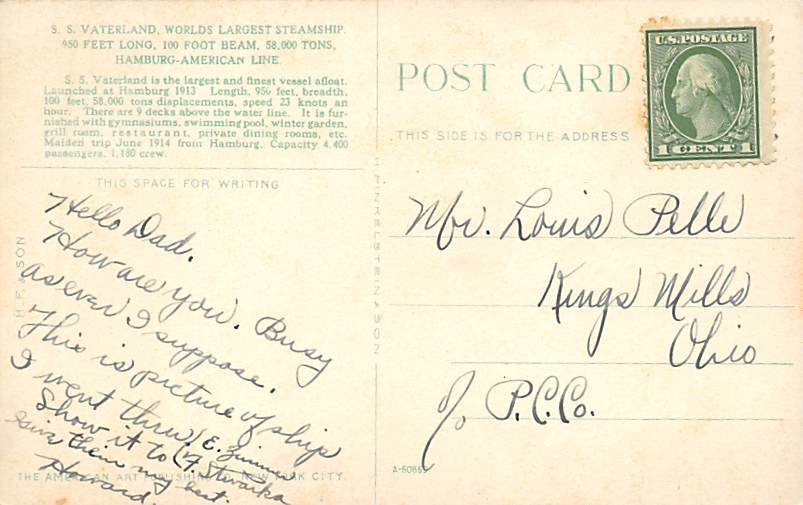 S. S. VATERLAND, WORLDS LARGEST STEAMSHIP.
950 FEET LONG, 100 FOOT BEAM, 58,000 TONS,
HAMBURG-AMERICAN LINE
S. S. Vaterland is the largest and finest vessel afloat.
Launched at Hamburg 1913 Length, 950 feet, breadth,
100 feet, 58,000 tons displacements, speed 23 knots an
hour. There are 9 decks above the water line. It is fur-
nished with gymnasiums, swimming pool, winter garden,
grill room, restaurant, private dining rooms, etc.
Maiden trip June 1914 from Hamburg. Capacity 4,400
passengers, 1,180 crew.
THIS SPACE FOR WRITING
Hello Dad.
How are you. Busy
as ever I suppose.
This is picture of ship
I went thru
Show it to E.
give them my best.
Howard.
H. F. & SON
THE AMERICAN ART PUBLISHING CO. NEW YORK CITY
H. FINKELSTEIN & SON
POST CARD
THIS SIDE IS FOR THE ADDRESS
U.S. POSTAGE
1 CENT 1
Mr. Louis Pelle
Kings Mills
Ohio
c/o P.C.Co.